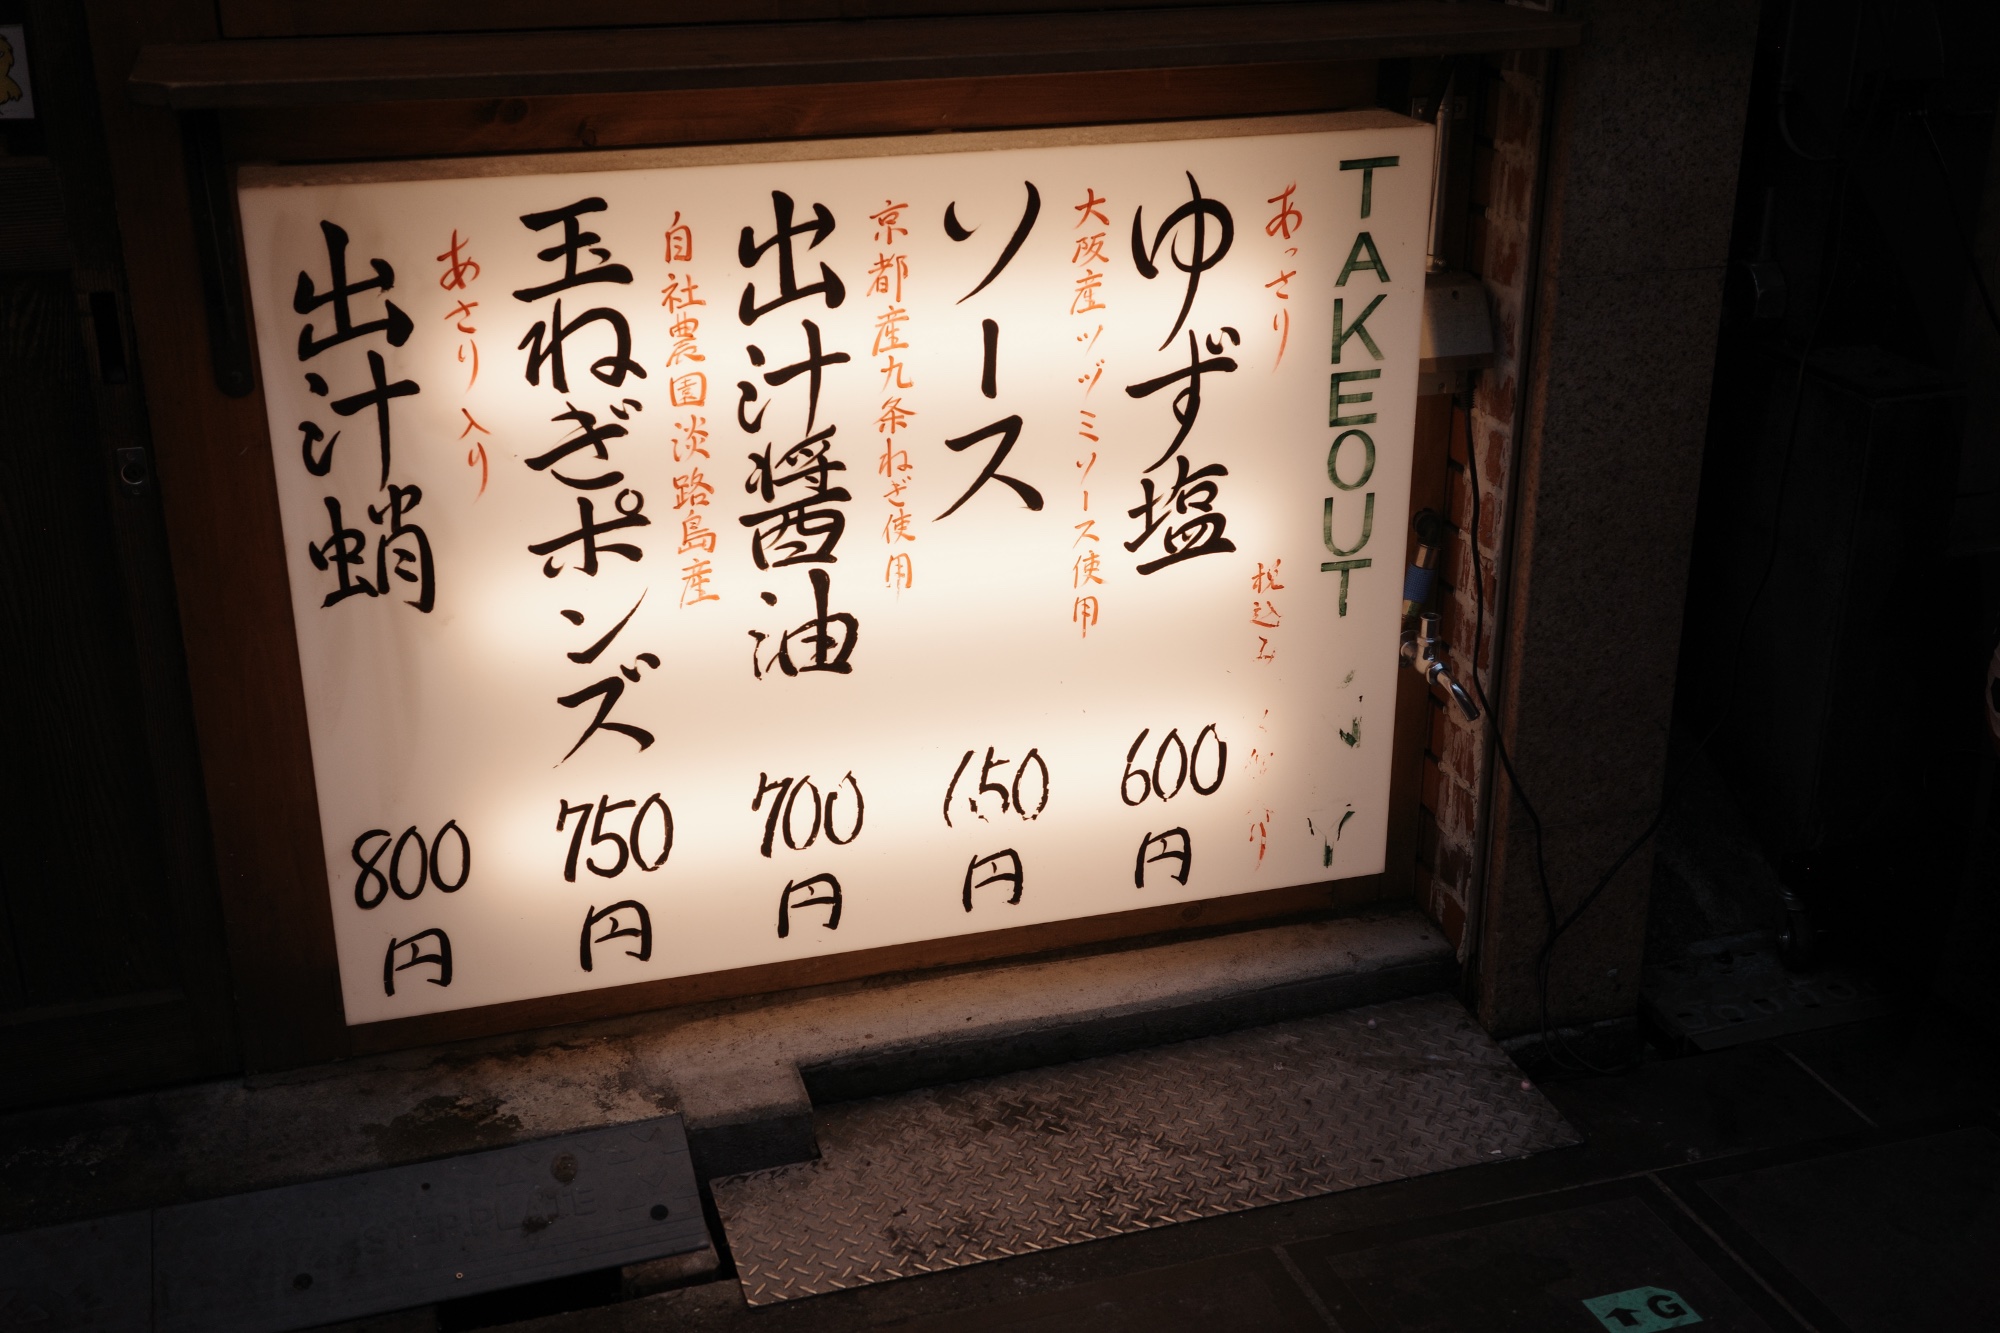 TAKEOUT
あっさり
税込み
ゆず塩
600円
大阪産ツヅミソース使用
ソース
650円
京都産九条ねぎ使用
出汁醤油
700円
自社農園淡路島産
玉ねぎポンズ
750円
あさり入り
出汁蛸
800円
G